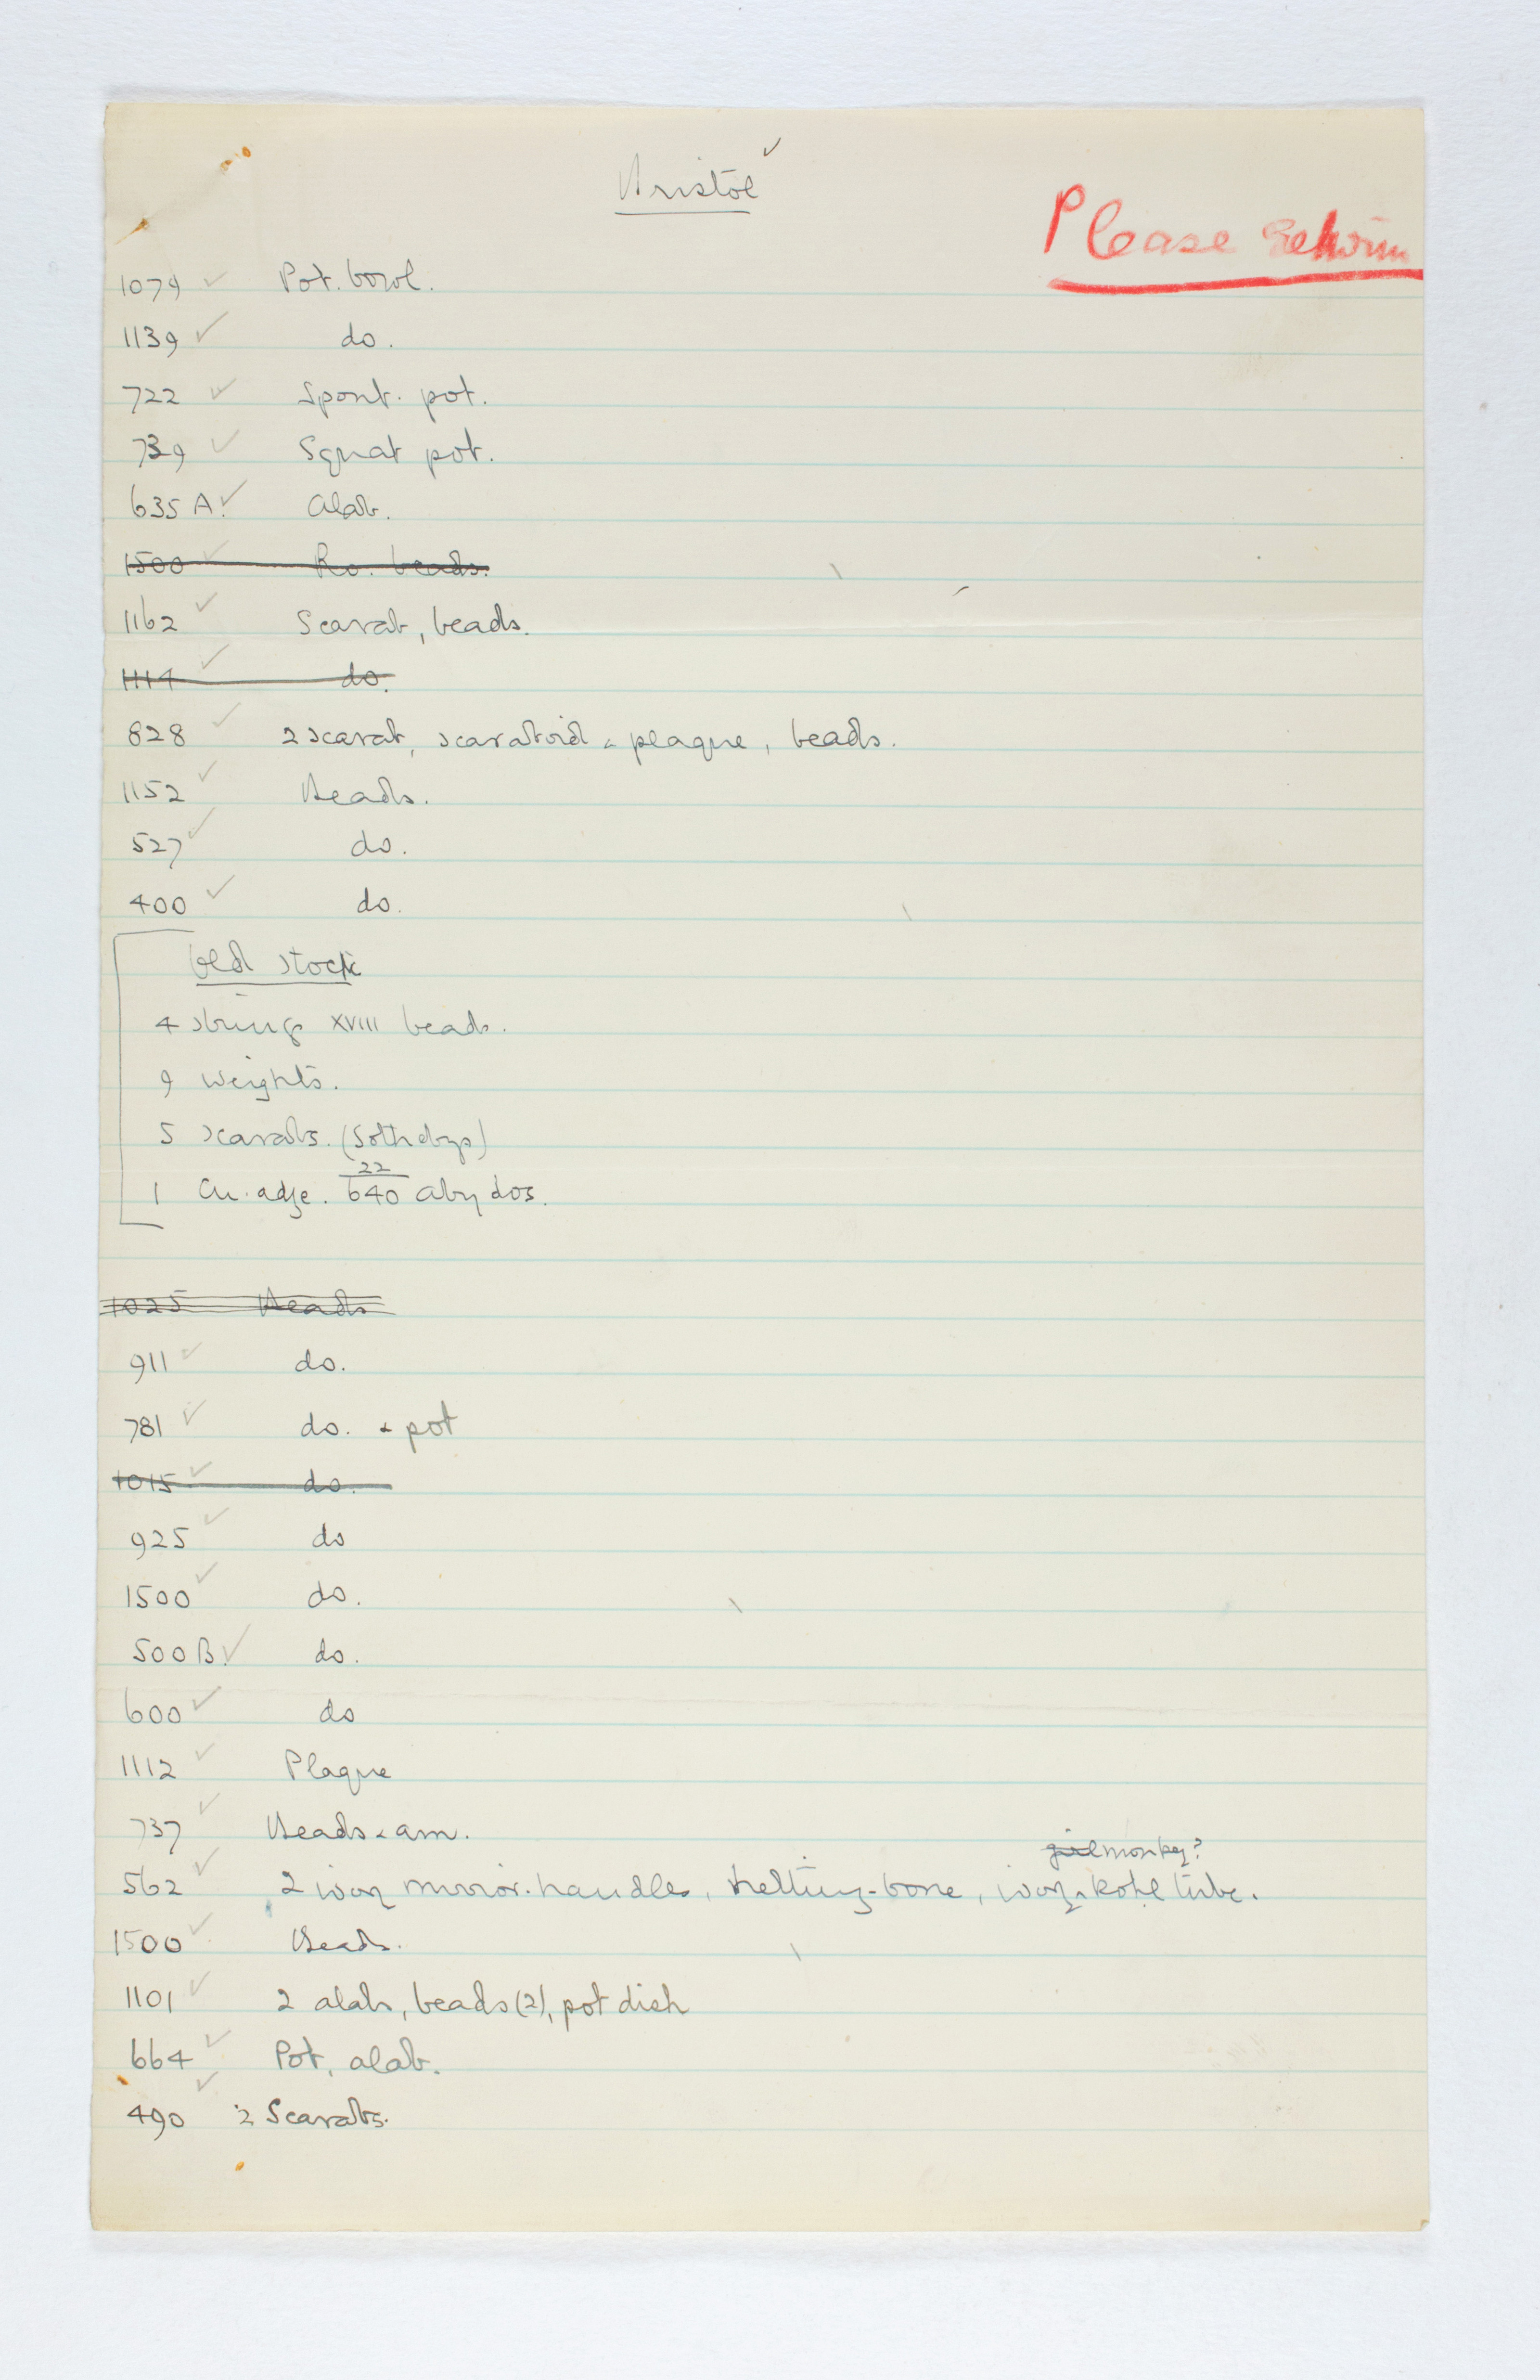 Bristol ✓
Please return
1079 ✓ Pot. bowl.
1139 ✓ do.
722 ✓ Spout. pot.
739 ✓ Squat pot.
635 A. ✓ Alab.
1500 ✓ Ro. beads.
1162 ✓ Scarab, beads.
1114 ✓ do.
828 ✓ 2 scarab, scaraboid & plaque, beads.
1152 ✓ Beads.
527 ✓ do.
400 ✓ do.
Old stock
4 strings XVIII beads.
9 weights.
5 scarabs. (Sothebys)
22
1 Cu. adze. 640 Abydos.
1025 Beads
911 ✓ do.
781 ✓ do. & pot
1015 ✓ do.
925 ✓ do
1500 ✓ do.
500 B. ✓ do.
600 ✓ do
1112 ✓ Plaque
737 ✓ Beads & am.
girl monkey?
562 ✓ 2 ivory mirror-handles, netting-bone, ivory kohl tube.
1500 ✓ Beads.
1101 ✓ 2 alab, beads (2), pot dish
664 ✓ Pot, alab.
490 ✓ 2 Scarabs.